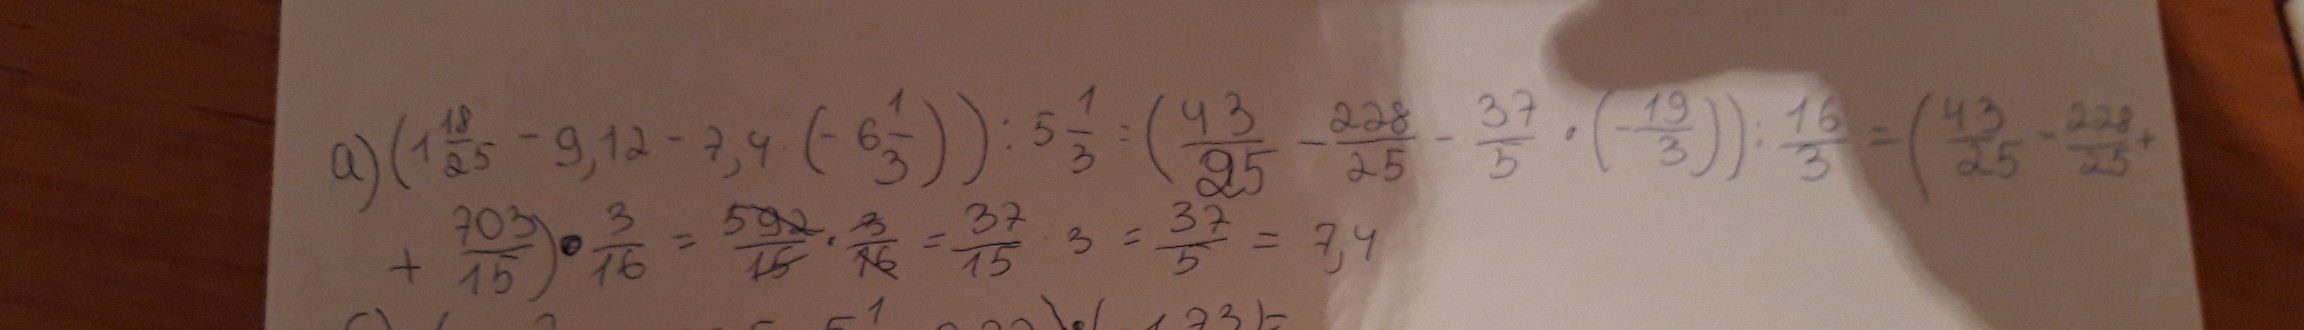 a) (1 18/25 - 9,12 - 7,4 · (- 6 1/3)) : 5 1/3 = (43/25 - 228/25 - 37/5 · (-19/3)) : 16/3 = (43/25 - 228/25 +
+ 703/15) · 3/16 = 592/15 · 3/16 = 37/15 · 3 = 37/5 = 7,4